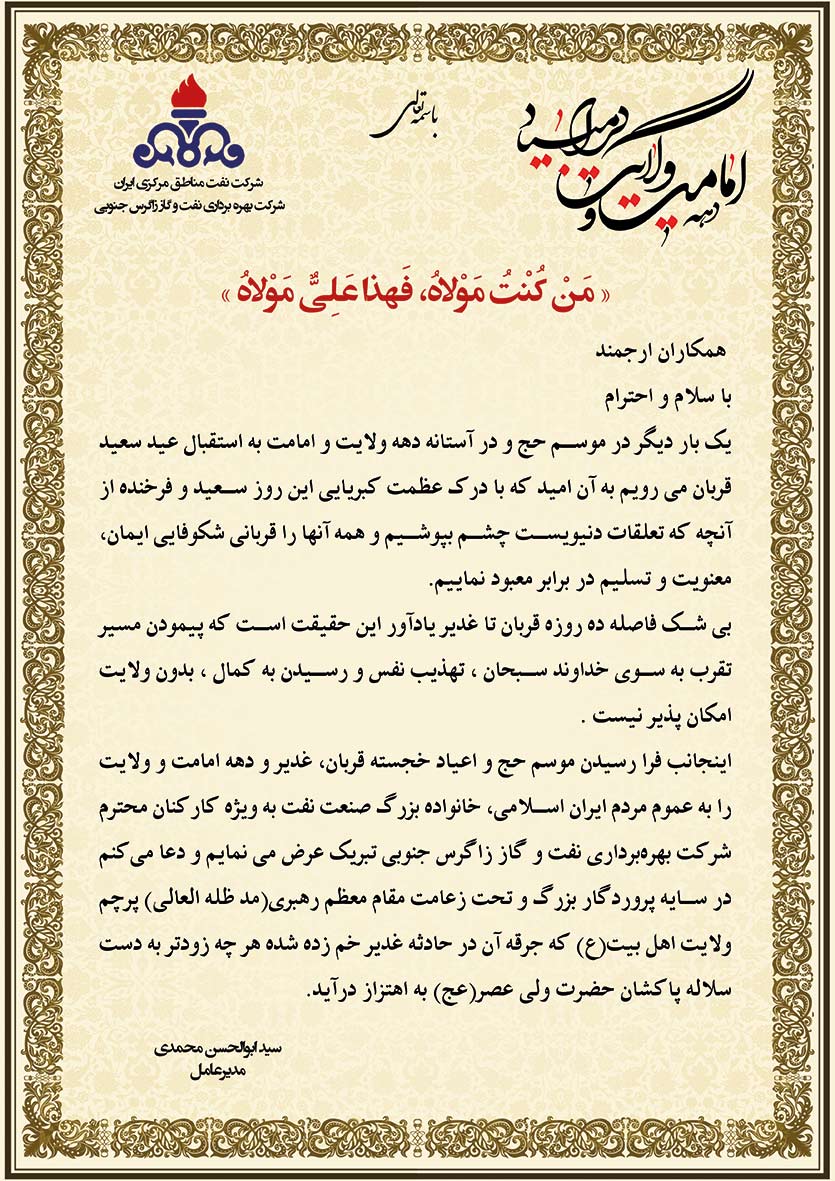 باسمه تعالی
دهه امامت و ولایت گرامیباد
شرکت نفت مناطق مرکزی ایران
شرکت بهره برداری نفت و گاز زاگرس جنوبی
« مَنْ کُنْتُ مَوْلاهُ، فَهذا عَلِیٌّ مَوْلاهُ »
همکاران ارجمند
با سلام و احترام
یک بار دیگر در موسم حج و در آستانه دهه ولایت و امامت به استقبال عید سعید
قربان می رویم به آن امید که با درک عظمت کبریایی این روز سعید و فرخنده از
آنچه که تعلقات دنیویست چشم بپوشیم و همه آنها را قربانی شکوفایی ایمان،
معنویت و تسلیم در برابر معبود نماییم.
بی شک فاصله ده روزه قربان تا غدیر یادآور این حقیقت است که پیمودن مسیر
تقرب به سوی خداوند سبحان ، تهذیب نفس و رسیدن به کمال ، بدون ولایت
امکان پذیر نیست .
اینجانب فرا رسیدن موسم حج و اعیاد خجسته قربان، غدیر و دهه امامت و ولایت
را به عموم مردم ایران اسلامی، خانواده بزرگ صنعت نفت به ویژه کارکنان محترم
شرکت بهره‌برداری نفت و گاز زاگرس جنوبی تبریک عرض می نمایم و دعا می‌کنم
در سایه پروردگار بزرگ و تحت زعامت مقام معظم رهبری(مد ظله العالی) پرچم
ولایت اهل بیت(ع) که جرقه آن در حادثه غدیر خم زده شده هر چه زودتر به دست
سلاله پاکشان حضرت ولی عصر(عج) به اهتزاز درآید.
سید ابوالحسن محمدی
مدیرعامل